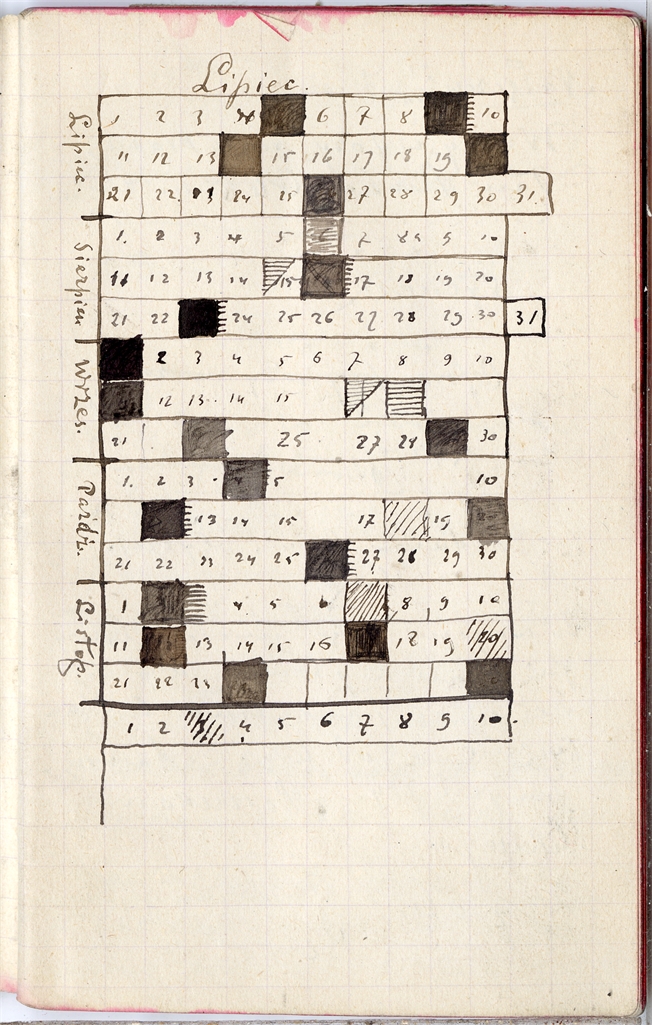 Lipiec.
Lipiec.
1 2 3 4 6 7 8 10
11 12 13 15 16 17 18 19
21 22 23 24 25 27 28 29 30 31.
Sierpień
1. 2 3 4 5 6 7 8 9 10
11 12 13 14 15 17 18 19 20
21 22 24 25 26 27 28 29 30 31
Wrześ.
2 3 4 5 6 7 8 9 10
12 13 14 15
21 25 27 28 30
Paźdź.
1. 2 3 5 10
13 14 15 17 19
21 22 23 24 25 27 28 29 30
Listop.
1 4 5 6 8 9 10
11 13 14 15 16 18 19 20
21 22 23
1 2 3 4 5 6 7 8 9 10